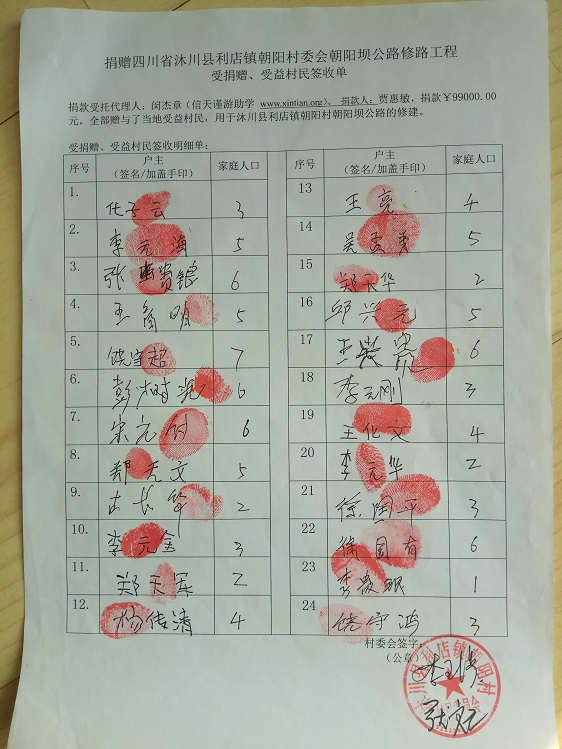 捐赠四川省沐川县利店镇朝阳村委会朝阳坝公路修路工程
受捐赠、受益村民签收单
捐款受托代理人：闵杰章（信天谨游助学 www.xintian.org）。 捐款人：贾惠敏，捐款￥99000.00
元，全部赠与了当地受益村民，用于沐川县利店镇朝阳村朝阳坝公路的修建。
受捐赠、受益村民签收明细单：
序号 户主（签名/加盖手印） 家庭人口
1. 任子云 3
2. 李元海 5
3. 张贵银 6
4. 王备明 5
5. 饶守超 7
6. 彭树光 6
7. 宋元付 6
8. 郑天文 5
9. 古长军 2
10. 李元金 3
11. 郑天军 2
12. 杨传清 4
序号 户主（签名/加盖手印） 家庭人口
13 王亮 4
14 吴孟 5
15 郑天华 2
16 邱兴元 5
17 王 6
18 李元刚 3
19 王化文 4
20 李元华 2
21 徐国平 3
22 徐国有 6
23 李 1
24 饶守鸿 3
村委会签字：
（公章）
川县利店镇朝阳村